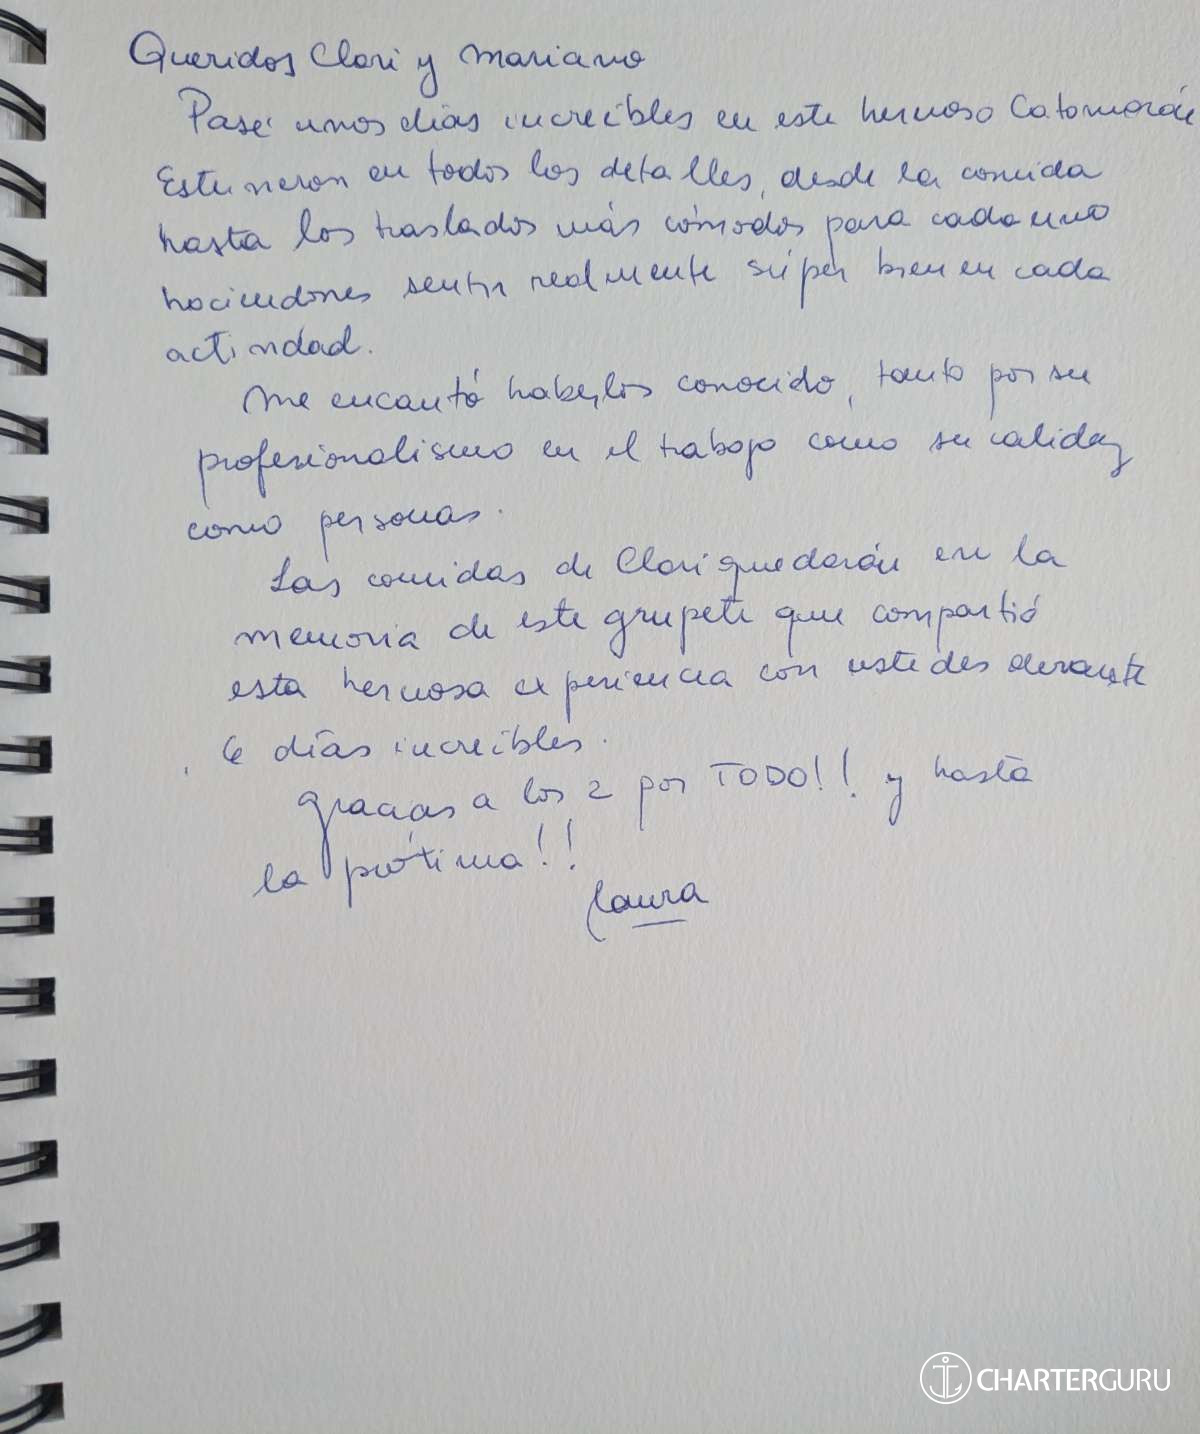 Queridos Clari y Mariano
Pasé unos días increíbles en este hermoso Catamarán
Estuvieron en todos los detalles, desde la comida
hasta los traslados más cómodos para cada uno
haciendones sentir realmente súper bien en cada
actividad.
Me encantó haberlos conocido, tanto por su
profesionalismo en el trabajo como su calidez
como personas.
Las comidas de Clari quedarán en la
memoria de este grupete que compartió
esta hermosa experiencia con ustedes durante
6 días increíbles.
gracias a los 2 por TODO!! y hasta
la próxima!!
Laura
CHARTERGURU